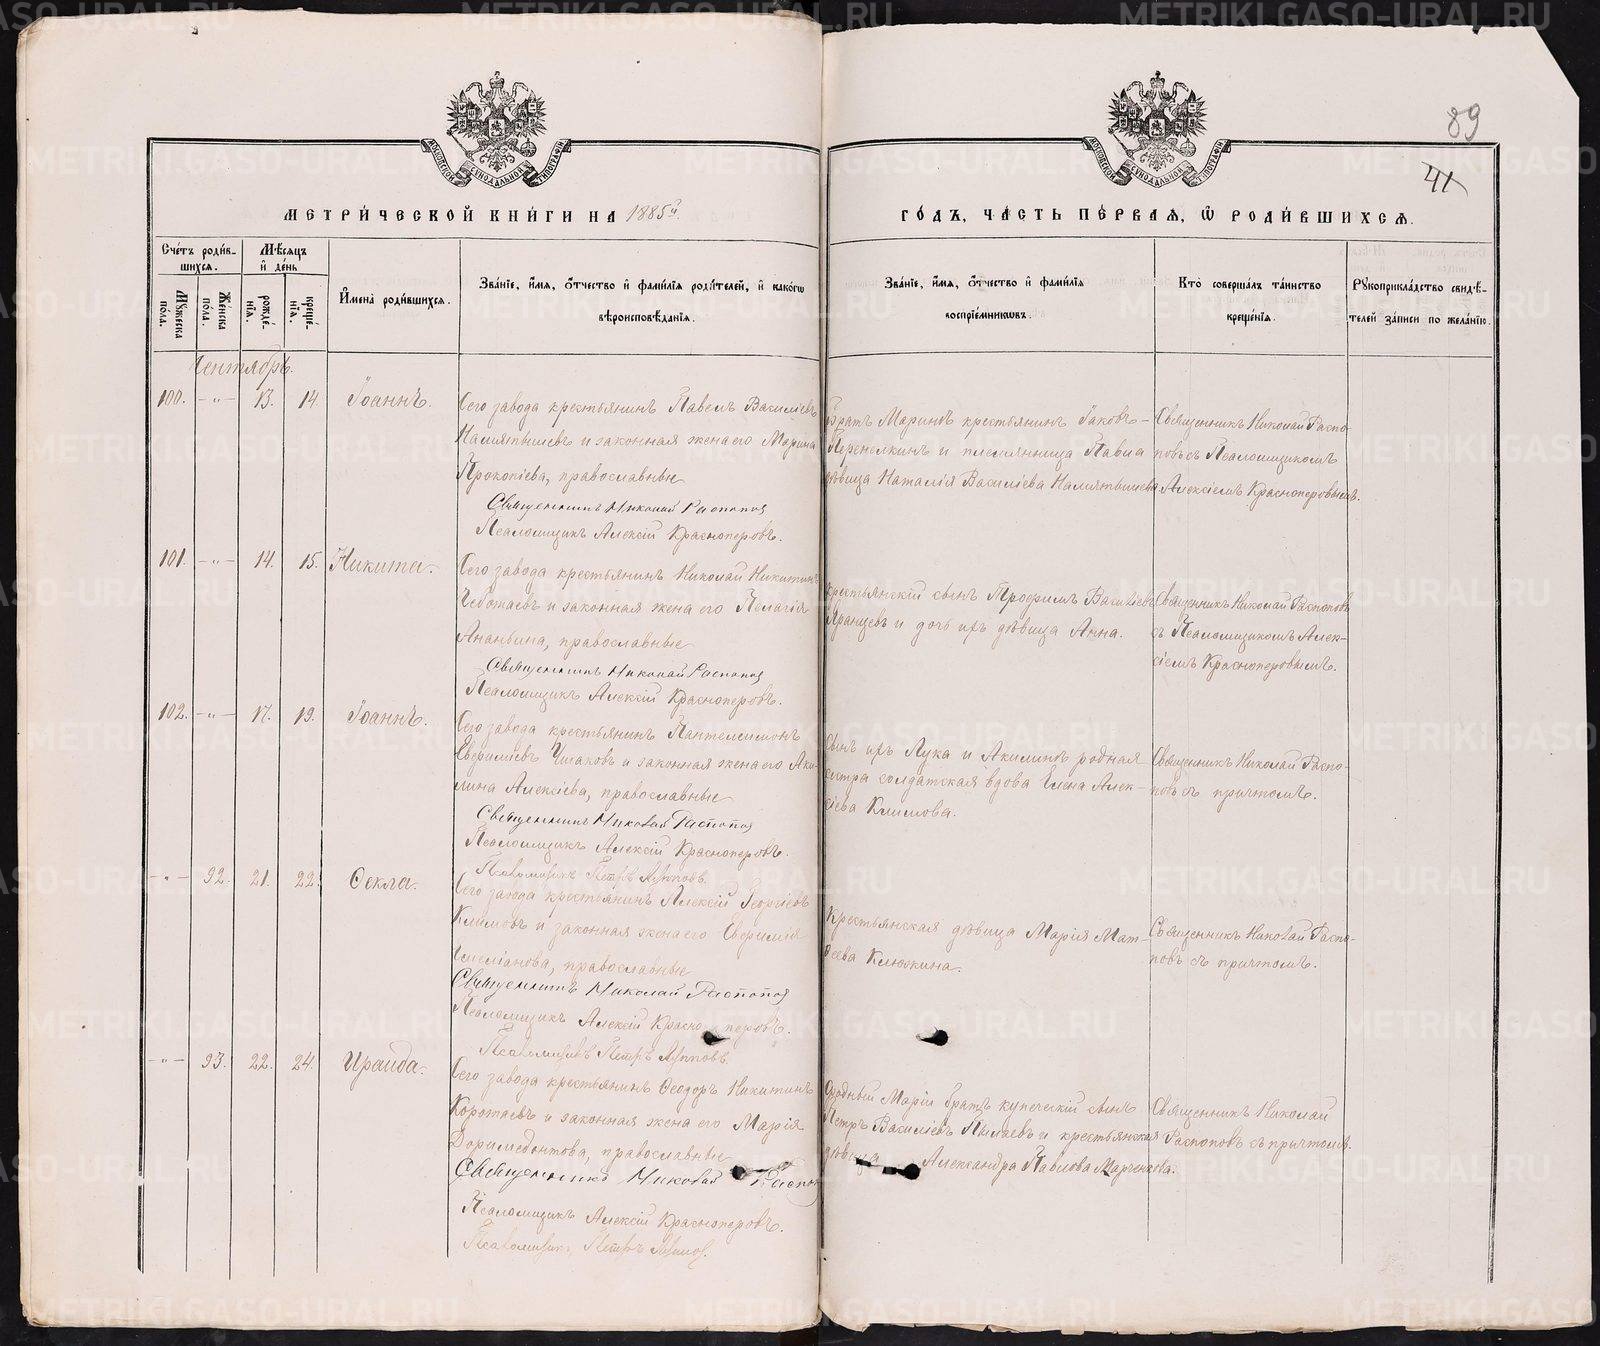 89
41
МОСКОВСКОЙ СѴНОДАЛЬНОЙ ТИПОГРАФІИ
МОСКОВСКОЙ СѴНОДАЛЬНОЙ ТИПОГРАФІИ
МЕТРИ́ЧЕСКОЙ КНИ́ГИ НА 1885й
ГО́ДЪ, ЧА́СТЬ ПЕ́РВАЯ, Ѽ РОДИ́ВШИХСЯ.
Сче́тъ роди́в-
шихся.
Мѣ́сяцъ
и҆ де́нь
Мꙋ́жеска по́ла.
Же́нска по́ла.
рожде́-
нїѧ.
креще́-
нїѧ.
И҆мена̀ роди́вшихся.
Зва́нїе, и҆́мя, ѻ҆́тчество и҆ фамѝлїя роди́телей, и҆ како́гѡ
вѣроисповѣ́данїя.
Зва́нїе, и҆́мя, ѻ҆́тчество и҆ фамѝлїя
воспрїе́мникѡвъ.
Кто̀ соверша́лъ та́инство
креще́нїя.
Рꙋкоприкла́дство свидѣ́-
телей за́писи по жела́нїю.
Сентябрь.
100. - " - 13. 14. Іоаннъ.
Сего завода крестьянинъ Павелъ Василіевъ
и законная жена его Марина
Прокопіева, православные
Священникъ Николай Распопов
Псаломщикъ Алексій Красноперовъ.
Братъ Марины крестьянинъ Іаковъ
Перепелкинъ и племянница Павла
дѣвица Наталія Василіева
Священникъ Николай Распо-
повъ съ Псаломщикомъ
Алексіемъ Красноперовымъ.
101. - " - 14. 15. Никита.
Сего завода крестьянинъ Николай Никитинъ
Чеботаевъ и законная жена его Пелагія
Ананьина, православные
Священникъ Николай Распопов
Псаломщикъ Алексій Красноперовъ.
Крестьянскій сынъ Трофимъ Василіевъ
Яранцевъ и дочь ихъ дѣвица Анна.
Священникъ Николай Распоповъ
съ Псаломщикомъ Алек-
сіемъ Красноперовымъ.
102. - " - 17. 19. Іоаннъ.
Сего завода крестьянинъ Пантелеимонъ
и законная жена его Аки-
лина Алексіева, православные
Священникъ Николай Распопов
Псаломщикъ Алексій Красноперовъ.
Псаломщикъ Петръ Лупповъ.
Сынъ ихъ Лука и Акилины родная
сестра солдатская вдова Елена Алек-
сіева Климова.
Священникъ Николай Распо-
повъ съ причтомъ.
- " - 92. 21. 22. Ѳекла.
Сего завода крестьянинъ Алексій Георгіевъ
Климовъ и законная жена его Евфимія
Емеліанова, православные
Священникъ Николай Распопов
Псаломщикъ Алексій Красноперовъ.
Псаломщикъ Петръ Лупповъ.
Крестьянская дѣвица Марія Мат-
ѳеева Клюкина.
Священникъ Николай Распо-
повъ съ причтомъ.
- " - 93. 22. 24. Ираида.
Сего завода крестьянинъ Ѳеодоръ Никитинъ
Коротаевъ и законная жена его Марія
Доримедонтова, православные
Священникъ Николай Распоп
Псаломщикъ Алексій Красноперовъ.
Псаломщикъ Петръ Луппов.
Сродный Маріи братъ купеческій сынъ
Петръ Василіевъ и крестьянская
дѣвица Александра Павлова Марченкова.
Священникъ Николай
Распоповъ съ причтомъ.
METRIKI.GASO-URAL.RU